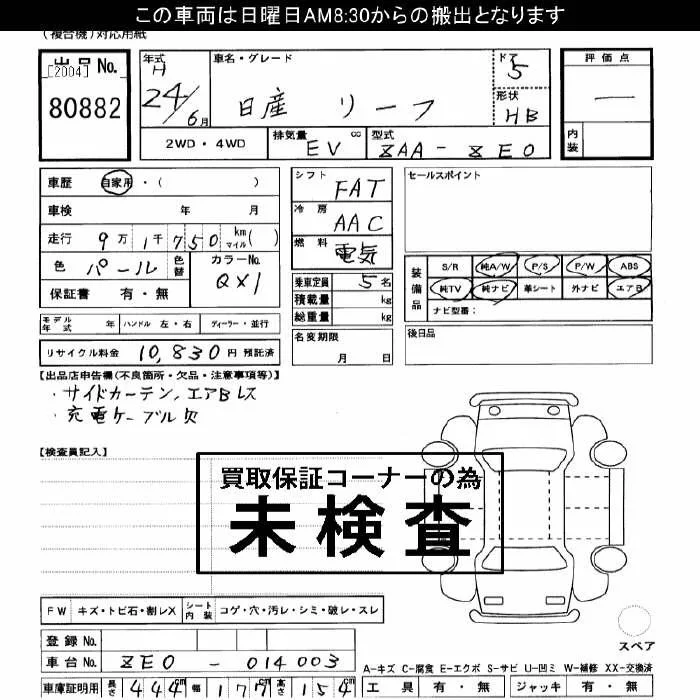 この車両は日曜日AM8:30からの搬出となります
(複合機)対応用紙
出品 No.
[2004]
80882
年式 H 24/6月
車名・グレード
日産 リーフ
ドア 5
形状 HB
評価点
一
内装
2WD・4WD
排気量 cc EV
型式 ZAA-ZE0
車歴 自家用・( )
車検 年 月
走行 9万1千750 km マイル( )
色 パール 色替 カラーNo. QX1
保証書 有・無
シフト FAT
冷房 AAC
燃料 電気
乗車定員 5名
積載量 kg
総重量 kg
名変期限
月 日
セールスポイント
装備品
S/R 純A/W P/S P/W ABS
純TV 純ナビ 革シート 外ナビ エアB
ナビ型番:
後日品
モデル年式 年 ハンドル 左・右 ディーラー・並行
リサイクル料金 10,830 円 預託済
【出品店申告欄(不良箇所・欠品・注意事項等)】
・サイドカーテン,エアBレス
・充電ケーブル欠
【検査員記入】
買取保証コーナーの為
未検査
FW キズ・トビ石・割レX シート内装 コゲ・穴・汚レ・シミ・破レ・スレ
登録 No.
車台 No. ZE0-014003
車庫証明用 長さ 444cm 幅 177cm 高さ 154cm
スペア
A-キズ C-腐食 E-エクボ S-サビ U-凹ミ W-補修 XX-交換済
工具 有・無 ジャッキ 有・無